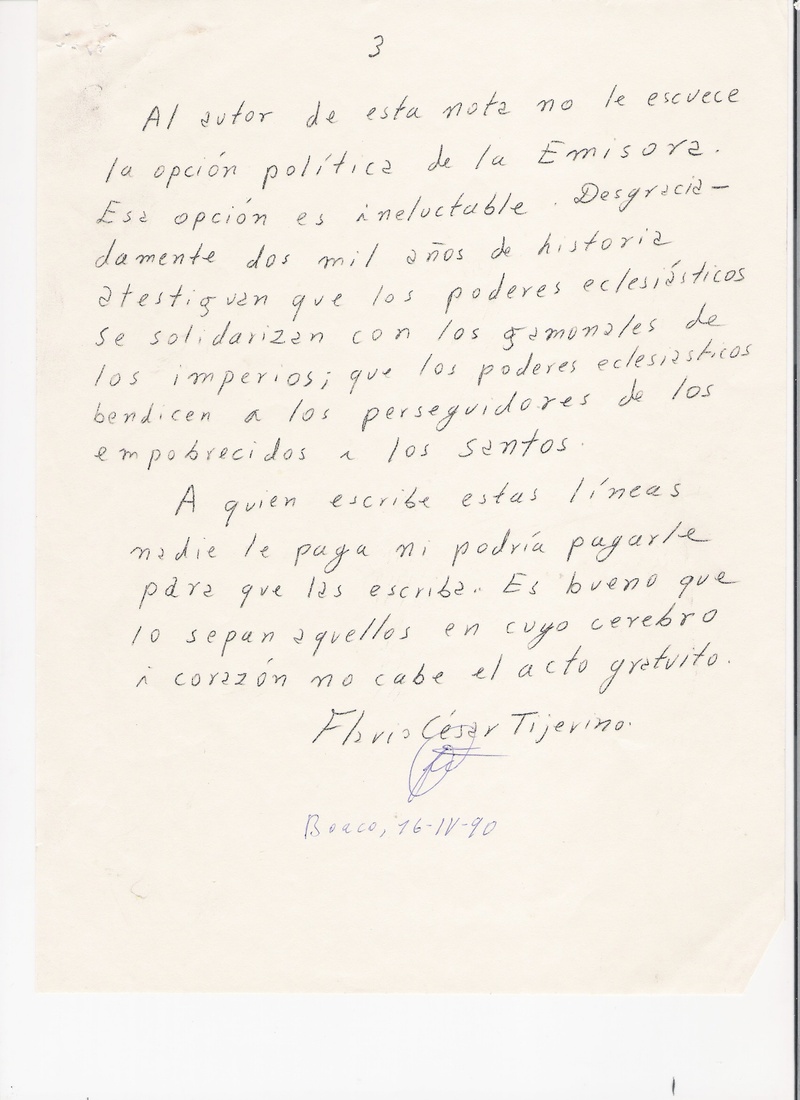 3
Al autor de esta nota no le escuece
la opción política de la Emisora.
Esa opción es ineluctable. Desgracia-
damente dos mil años de historia
atestiguan que los poderes eclesiásticos
se solidarizan con los gamonales de
los imperios; que los poderes eclesiasticos
bendicen a los perseguidores de los
empobrecidos i los santos.
A quien escribe estas líneas
nadie le paga ni podría pagarle
para que las escriba. Es bueno que
lo sepan aquellos en cuyo cerebro
i corazón no cabe el acto gratuito.
Flavio César Tijerino.
Boaco, 16-IV-90